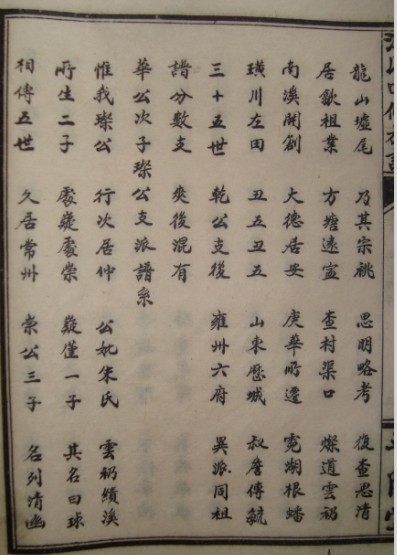 龍山墟尾 乃其宗祧 思明略考 後查思清
居歙祖業 方塘遠 查村渠口 燦道雲礽
南溪開創 大德居安 庚華所遷 霓湖根蟠
璜川左田 丑五丑五 山東歷城 叔詹傳毓
三十五世 乾公支後 雍州六府 異派同祖
譜分數支 爽後混有
華公次子璨公支派譜系
惟我璨公 行次居仲 公妣朱氏 雲礽績溪
所生二子 處嶷處崇 嶷僅一子 其名曰球
相傳五世 久居常州 崇公三子 名列清幽